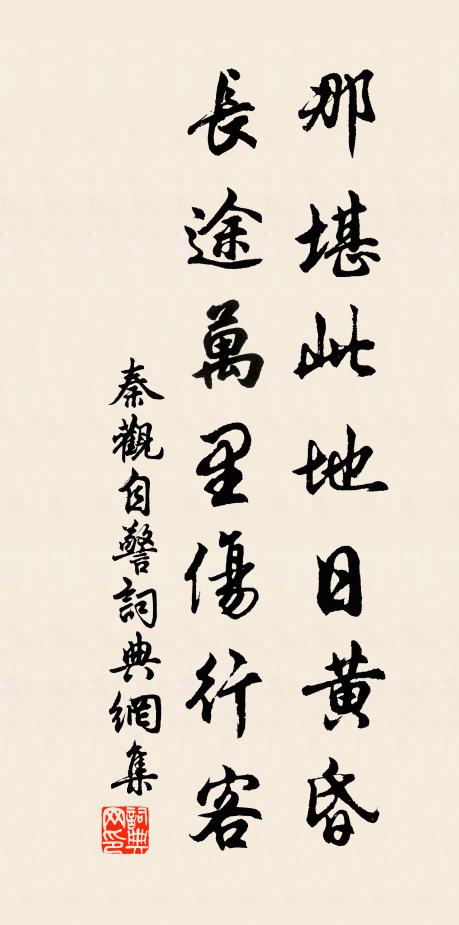 那堪此地日黄昏
長途萬里傷行客
秦觀自警詞典網集
詞典网印